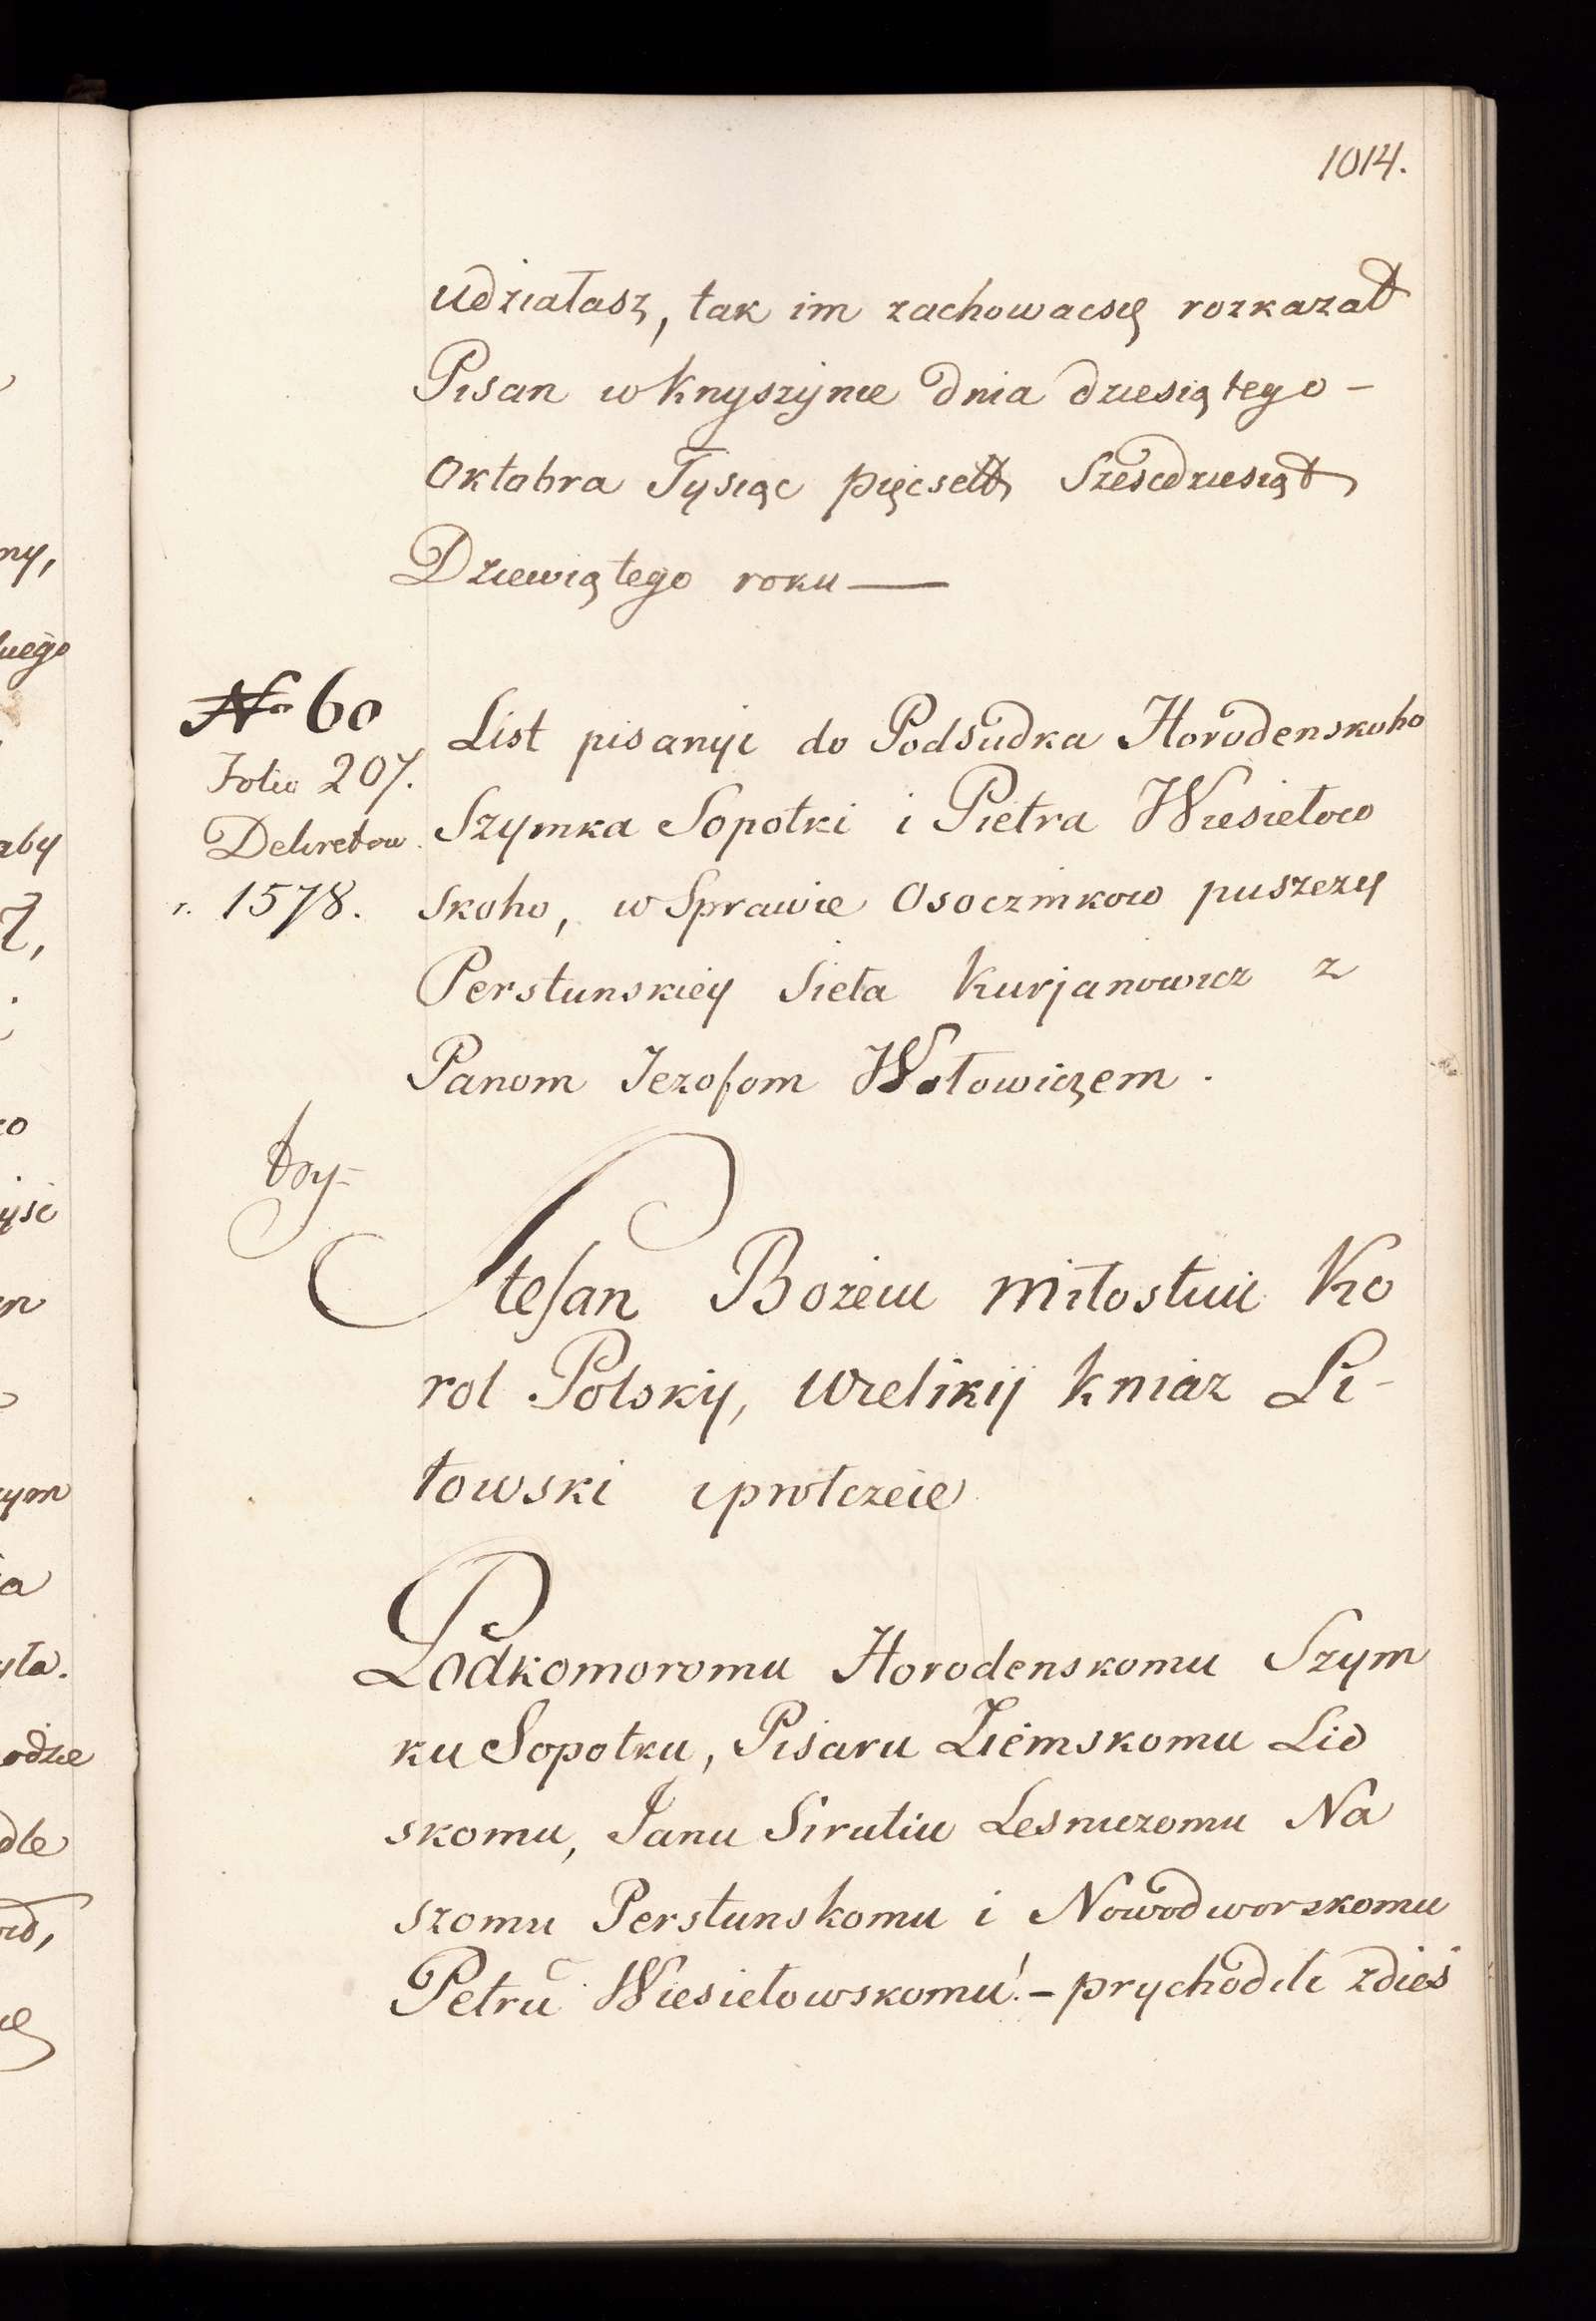 1014.
udziałasz, tak im zachowacsię rozkazał
Pisan w Knyszynie dnia dziesiątego –
Oktobra Tysiąc pięcset Szescdziesiąt
Dziewiątego roku —
No 60
Folio 207.
Dekretow
r. 1578.
List pisanyi do Podsudka Horodenskoho
Szymka Sopotki i Pietra Wiesiełow
skoho, w Sprawie Osocznikow puszczy
Perstunskiey Sieła Kurjanowicz z
Panom Jezofom Wołowiczem.
Stefan Bożeiu miłostiu Ko
rol Polskij, wielikij kniaz Li-
towski i protczeie
Podkomoromu Horodenskomu Szym
ku Sopotku, Pisaru Ziemskomu Lid
skomu, Janu Sirutiu Lesniczomu Na
szomu Perstunskomu i Nowodworskomu
Petru Wiesiełowskomu! – prychodili zdieś
ny,
aby
ym
yła.
odzie
dle